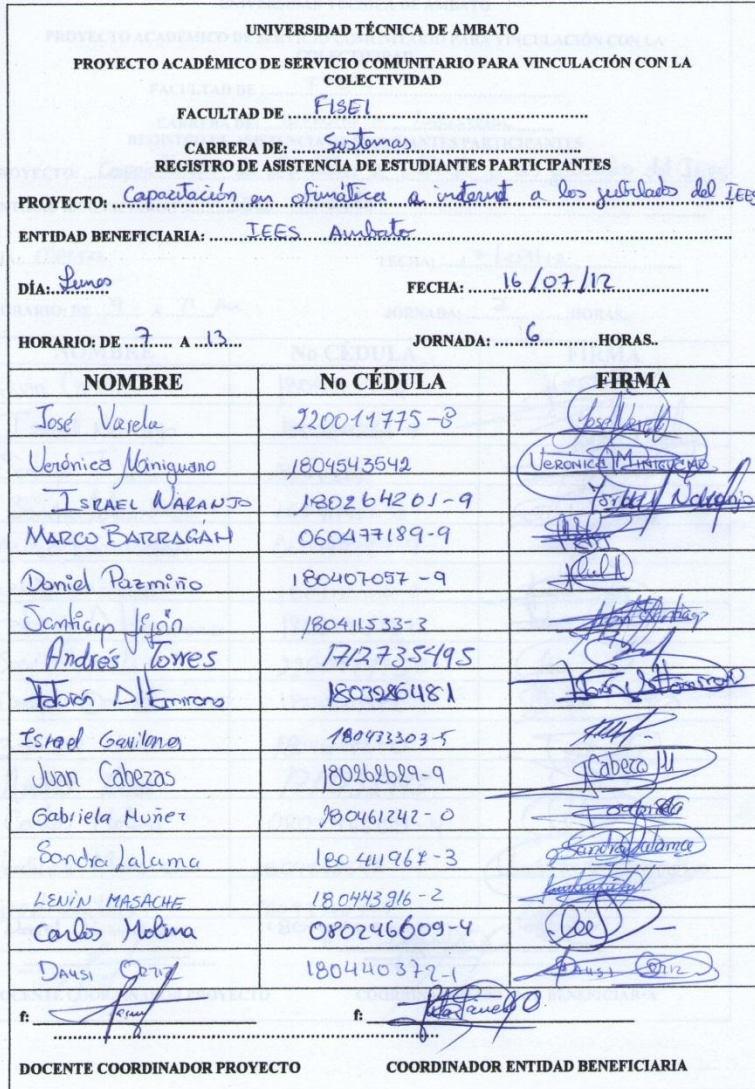 UNIVERSIDAD TÉCNICA DE AMBATO
PROYECTO ACADÉMICO DE SERVICIO COMUNITARIO PARA VINCULACIÓN CON LA
COLECTIVIDAD
FACULTAD DE FISEI
CARRERA DE: Sistemas
REGISTRO DE ASISTENCIA DE ESTUDIANTES PARTICIPANTES
PROYECTO: Capacitación en ofimática e internet a los jubilados del IEES
ENTIDAD BENEFICIARIA: IEES Ambato
DÍA: Lunes FECHA: 16/07/12
HORARIO: DE 7 A 13 JORNADA: 6 HORAS..
NOMBRE No CÉDULA FIRMA
José Varela 220011775-3 José Varela
Verónica Miniguano 1804543542 Verónica Miniguano
ISRAEL NARANJO 180264201-9 Naranjo
MARCO BARRAGÁN 060477189-9
Daniel Pazmiño 180407057-9
Santiago Jijón 180411533-3 Santiago
Andrés Torres 1712735495
Fabián Altamirano 1803286481
Israel Gavilanes 180433303-5
Juan Cabezas 180262629-9 Cabezas
Gabriela Muñoz 180461242-0 Gabriela
Sandra Jalama 180411967-3 Sandra Jalama
LENIN MASACHE 180443916-2
Carlos Molina 080246609-4
DAYSI ORTIZ 180440372-1 DAYSI ORTIZ
f: f:
DOCENTE COORDINADOR PROYECTO COORDINADOR ENTIDAD BENEFICIARIA